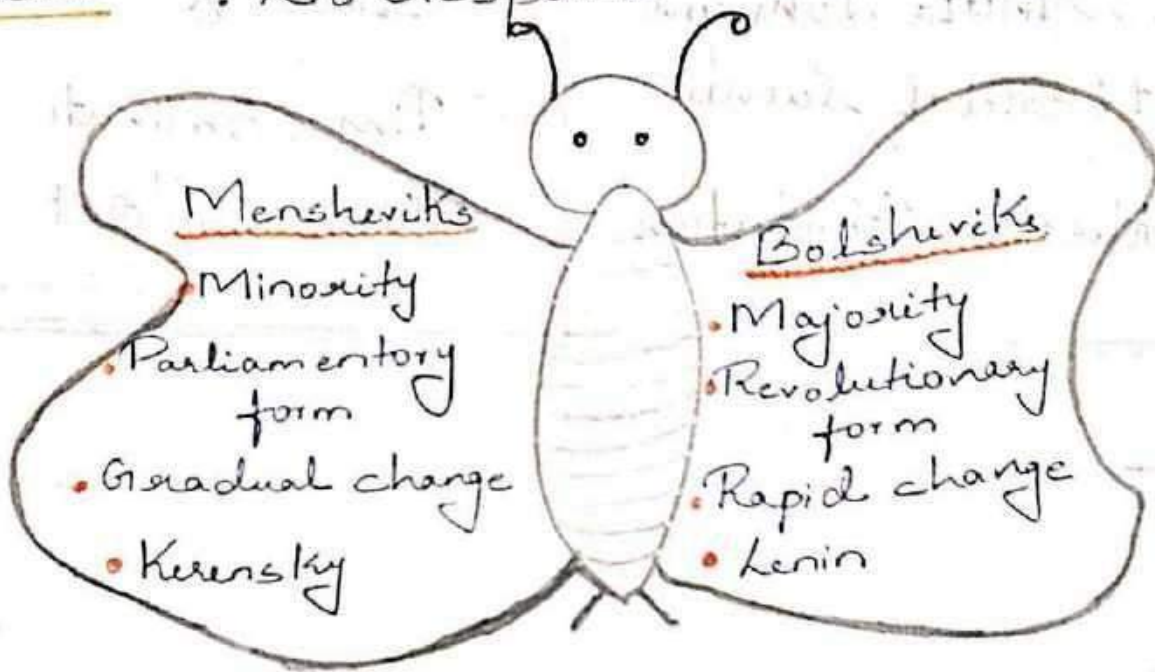 Mensheviks
• Minority
• Parliamentory
form
• Gradual change
• Kerensky
Bolsheviks
• Majority
• Revolutionary
form
• Rapid change
• Lenin